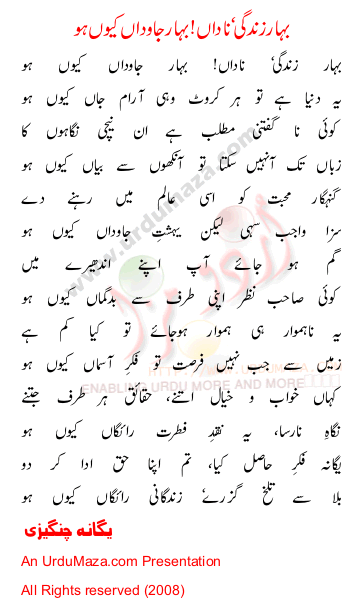 بہار زندگیٔ ناداں! بہار جاوداں کیوں ہو
بہار زندگیٔ ناداں! بہار جاوداں کیوں ہو
یہ دنیا ہے تو ہر کروٹ وہی آرام جاں کیوں ہو
کوئی نا گفتنی مطلب ہے ان نیچی نگاہوں کا
زباں تک آنہیں سکتا تو آنکھوں سے بیاں کیوں ہو
گنہگار محبت کو اسی عالم میں رہنے دے
سزا واجب سہی لیکن بہشتِ جاوداں کیوں ہو
گم ہو جائے آپ اپنے اندھیرے میں
کوئی صاحب نظر اپنی طرف سے بدگماں کیوں ہو
یہ ناہموار ہی ہموار ہوجائے تو کیا کم ہے
زمیں سے جب نہیں فرصت تو فکرِ آسماں کیوں ہو
کہاں خواب و خیال اتنے، حقائق ہر طرف جتنے
نگاہِ نارسا، یہ نقدِ فطرت رائگاں کیوں ہو
یگانہ فکرِ حاصل کیا، تم اپنا حق ادا کر دو
بلا سے تلخ گزرے زندگانی رائگاں کیوں ہو
یگانہ چنگیزی
An UrduMaza.com Presentation
All Rights reserved (2008)
www.urdumaza.com
اردو مزا
ENABLING URDU MORE AND MORE